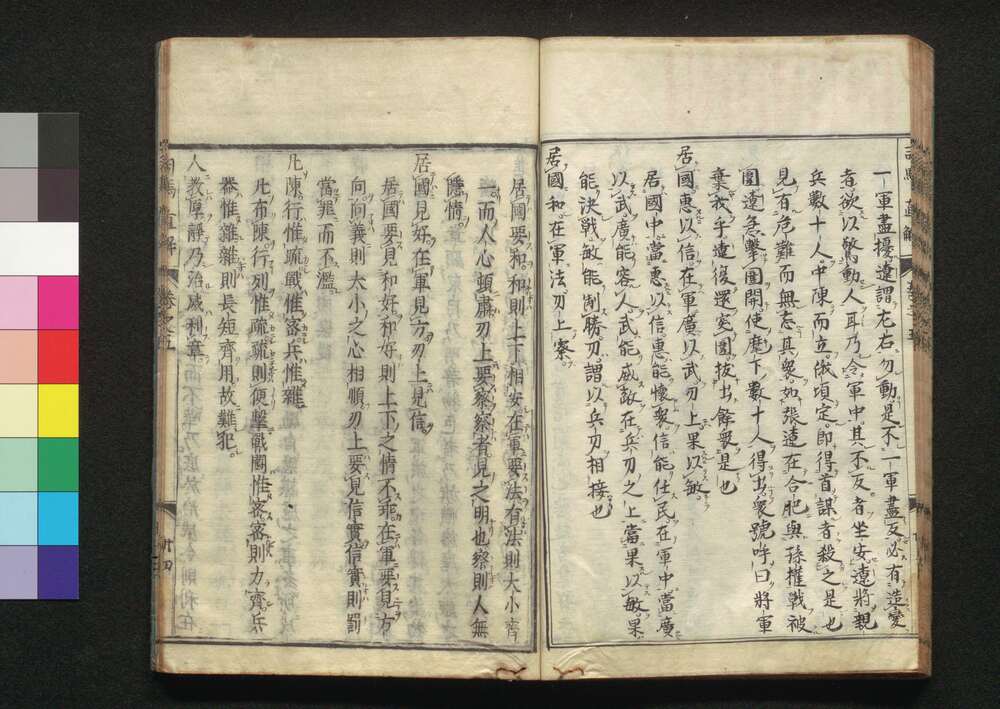 一軍盡擾遼謂左右勿動是不一軍盡反必有造變
者欲以驚動人耳乃令軍中其不反者坐安遼將親
兵數十人中陳而立俄頃定即得首謀者殺之是也
見有危難而無忘其衆如張遼在合肥與孫權戰被
圍遼急擊圍開使麾下數十人得出衆號呼曰將軍
棄我乎遼復還突圍拔出餘衆是也
居國惠以信在軍廣以武刃上果以敏
居國中當惠以信惠能懷衆信能仕民在軍中當廣
以武廣能容人武能威敵在兵刃之上當果以敏果
能決戰敏能制勝刃謂以兵刃相接也
居國和在軍法刃上察
居國要和和則上下相安在軍要法有法則大小齊
一而人心頓肅刃上要察察者見之明也察則人無
隱情
居國見好在軍見方刃上見信
居國要見和好和好則上下之情不乖在軍要見方
向方向義則大小之心相順刃上要見信實信實則罰
當罪而不濫
凡陳行惟疏戰惟密兵惟雜
凡布陳行列惟疏疏則便擊戰鬪惟密密則力齊兵
器惟雜雜則長短齊用故難犯
人教厚靜乃治威利章
直解
廿四